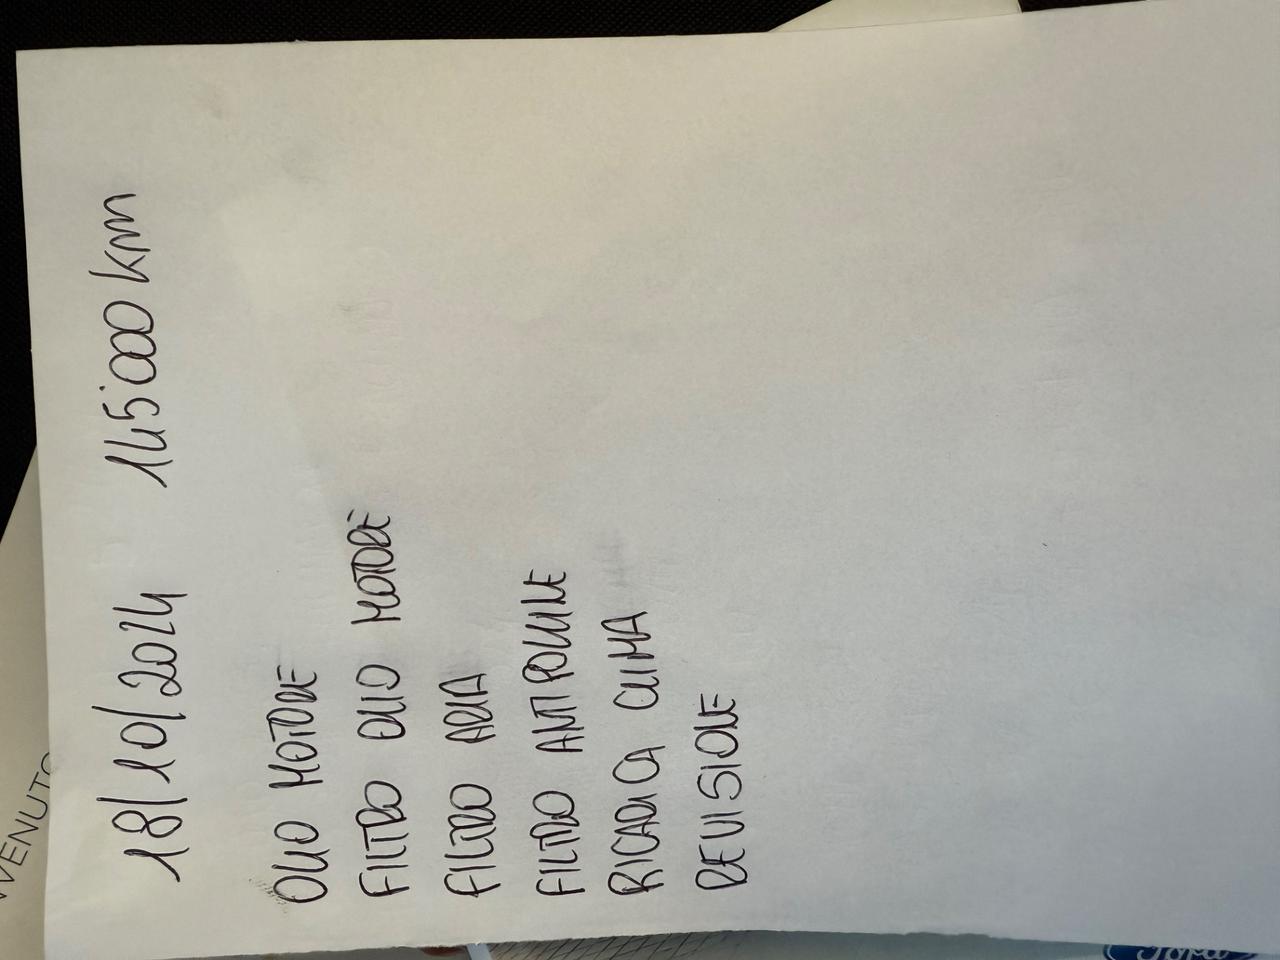 18/10/2024 145'000 km
OLIO MOTORE
FILTRO OLIO MOTORE
FILTRO ARIA
FILTRO ANTIPOLLINE
RICARICA CLIMA
REVISIONE
VVENUTO
Ford